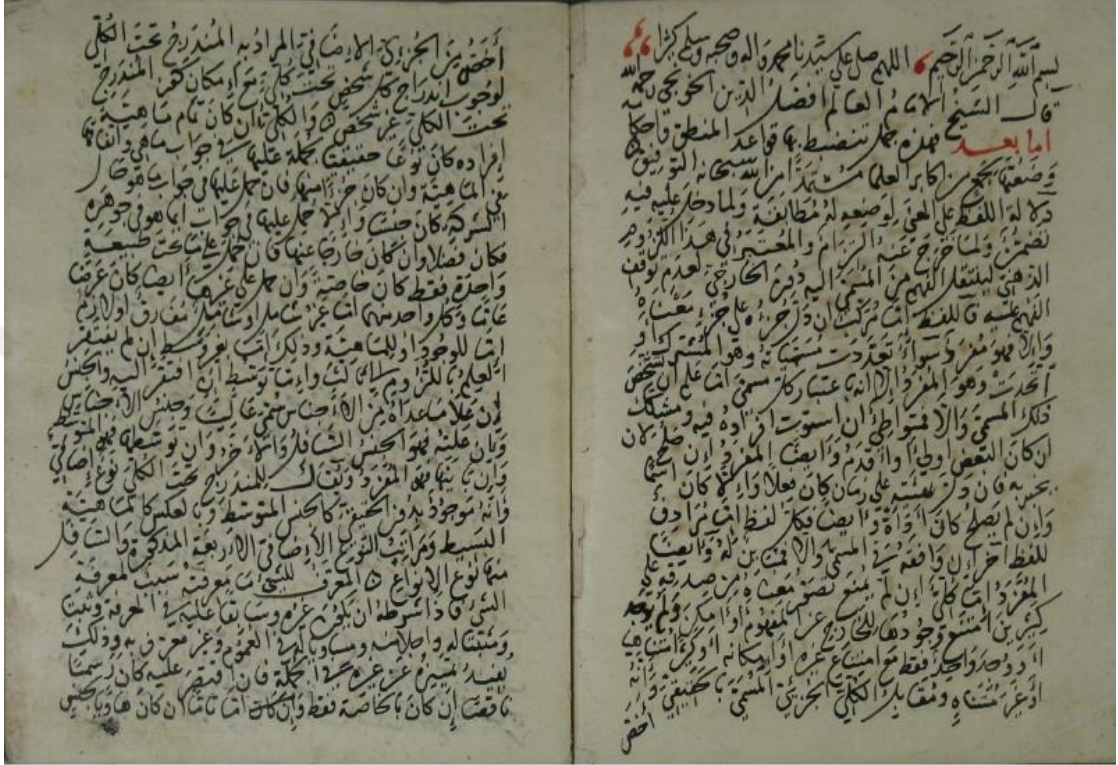 بسم الله الرحمن الرحيم اللهم صل على سيدنا محمد واله وصحبه وسلم كثيرا
قال الشيخ الامام العالم افضل الدين الخونجي رحمه الله
اما بعد فهذه جمل تنضبط بها قواعد المنطق واحكامه
وضعتها من اكابر العلما مستمدا من الله سبحانه التوفيق
دلالة اللفظ على المعنى لوضعه له مطابقة ولما دخل عليه فيه
تضمن ولما خرج عنه التزام والمعتبر في هذا اللزوم
الذهني لينتقل الفهم من المسمى اليه دون الخارجي لعدم توقف
الفهم عليه فاللفظ اما مركب ان دل جزءه على جزء معناه
والا فهو مفرد سواء تعددت مسمياته وهو المشترك او
اتحدت وهو المفرد الا انه باعتبار كل مسمى اما علم ان تشخص
ذلك المسمى والا فمتواطئ ان استوت افراده فيه ومشكك
ان كان البعض اولى او اقدم وايضا المفرد ان صلح لان
يخبر به فان دل بهيئته على زمان كان فعلا والا كان اسما
وان لم يصلح كان اداة وايضا فكل لفظ اما مرادف
للفظ اخر ان وافقه في المسمى والا فمباين له وايضا
المفرد اما كلي ان لم يمنع تصور معناه من صدقه على
كثيرين امتنع وجودها للخارج عن المفهوم او امكن ولم يوجد
او وجد واحد فقط مع امتناع غيره او امكانه او كثير متناه
او غير متناه ومقابل الكلي الجزئي المسمى بالحقيقي وانه
اخص
اخص من الجزئي الاضافي المراد به المندرج تحت الكلي
لوجوب اندراج كل شخص تحت كلي مع امكان كون المندرج
تحت الكلي غير شخص والكلي ان كان تمام ماهية
افراده كان نوعا حقيقيا يحمله عليها في جواب ماهي واتفاقها
في الماهية وان كان جزءا منها فان حمل عليها في جواب ماهو حال
الشركة كان جنسا والا حمل عليها في جواب ايما هو في جوهره
فكان فصلا وان كان خارجا عنها فان حمل على ماتحت طبيعة
واحدة فقط كان خاصة وان حمل على غيرها ايضا كان عرضا
عاما وكل واحد منهما اما غير شامل او شامل مفارق او لازم
اما للوجود او للماهية وذلك اما بغير وسط ان لم يفتقر
العلم باللزوم الى ثالث واما بوسط ان افتقر اليه والجنس
ان علا ماعداه من الاجناس سمي عاليا وجنس الاجناس
وان باينها فهو المفرد ويقال للمندرج تحت الكلي نوع اضافي
وانه موجود بدون الحقيقي كالجنس المتوسط وبالعكس كالماهية
البسيطة ومراتب النوع الاضافي الاربعة المذكورة والسافل
منها نوع الانواع المعرف للشيء ما معرفته سبب لمعرفة
الشيء فاذا شرطه ان يكون غيره وسابقا عليه في المعرفة
واجلا منه ومساويا له في العموم وغير معرف به وذلك
يفيد تمييزه عن غيره في الجملة فان اقتصر عليه كان رسما
ناقصا ان كان بالخاصة فقط وان كان اما تاما ان كان بها وبالجنس